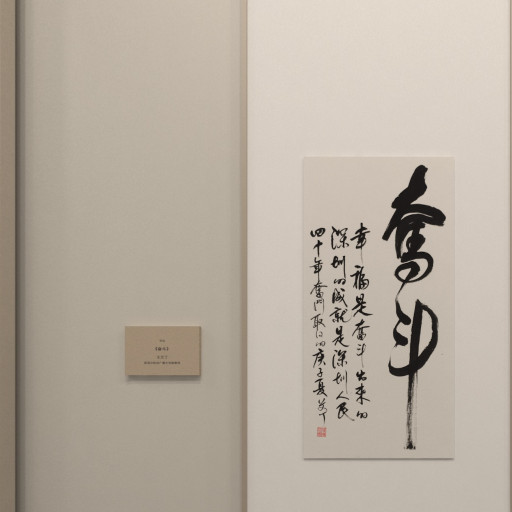 奋斗
幸福是奋斗出来的
深圳的成就是深圳人民
四十年奋斗取得的庚子夏
《奋斗》